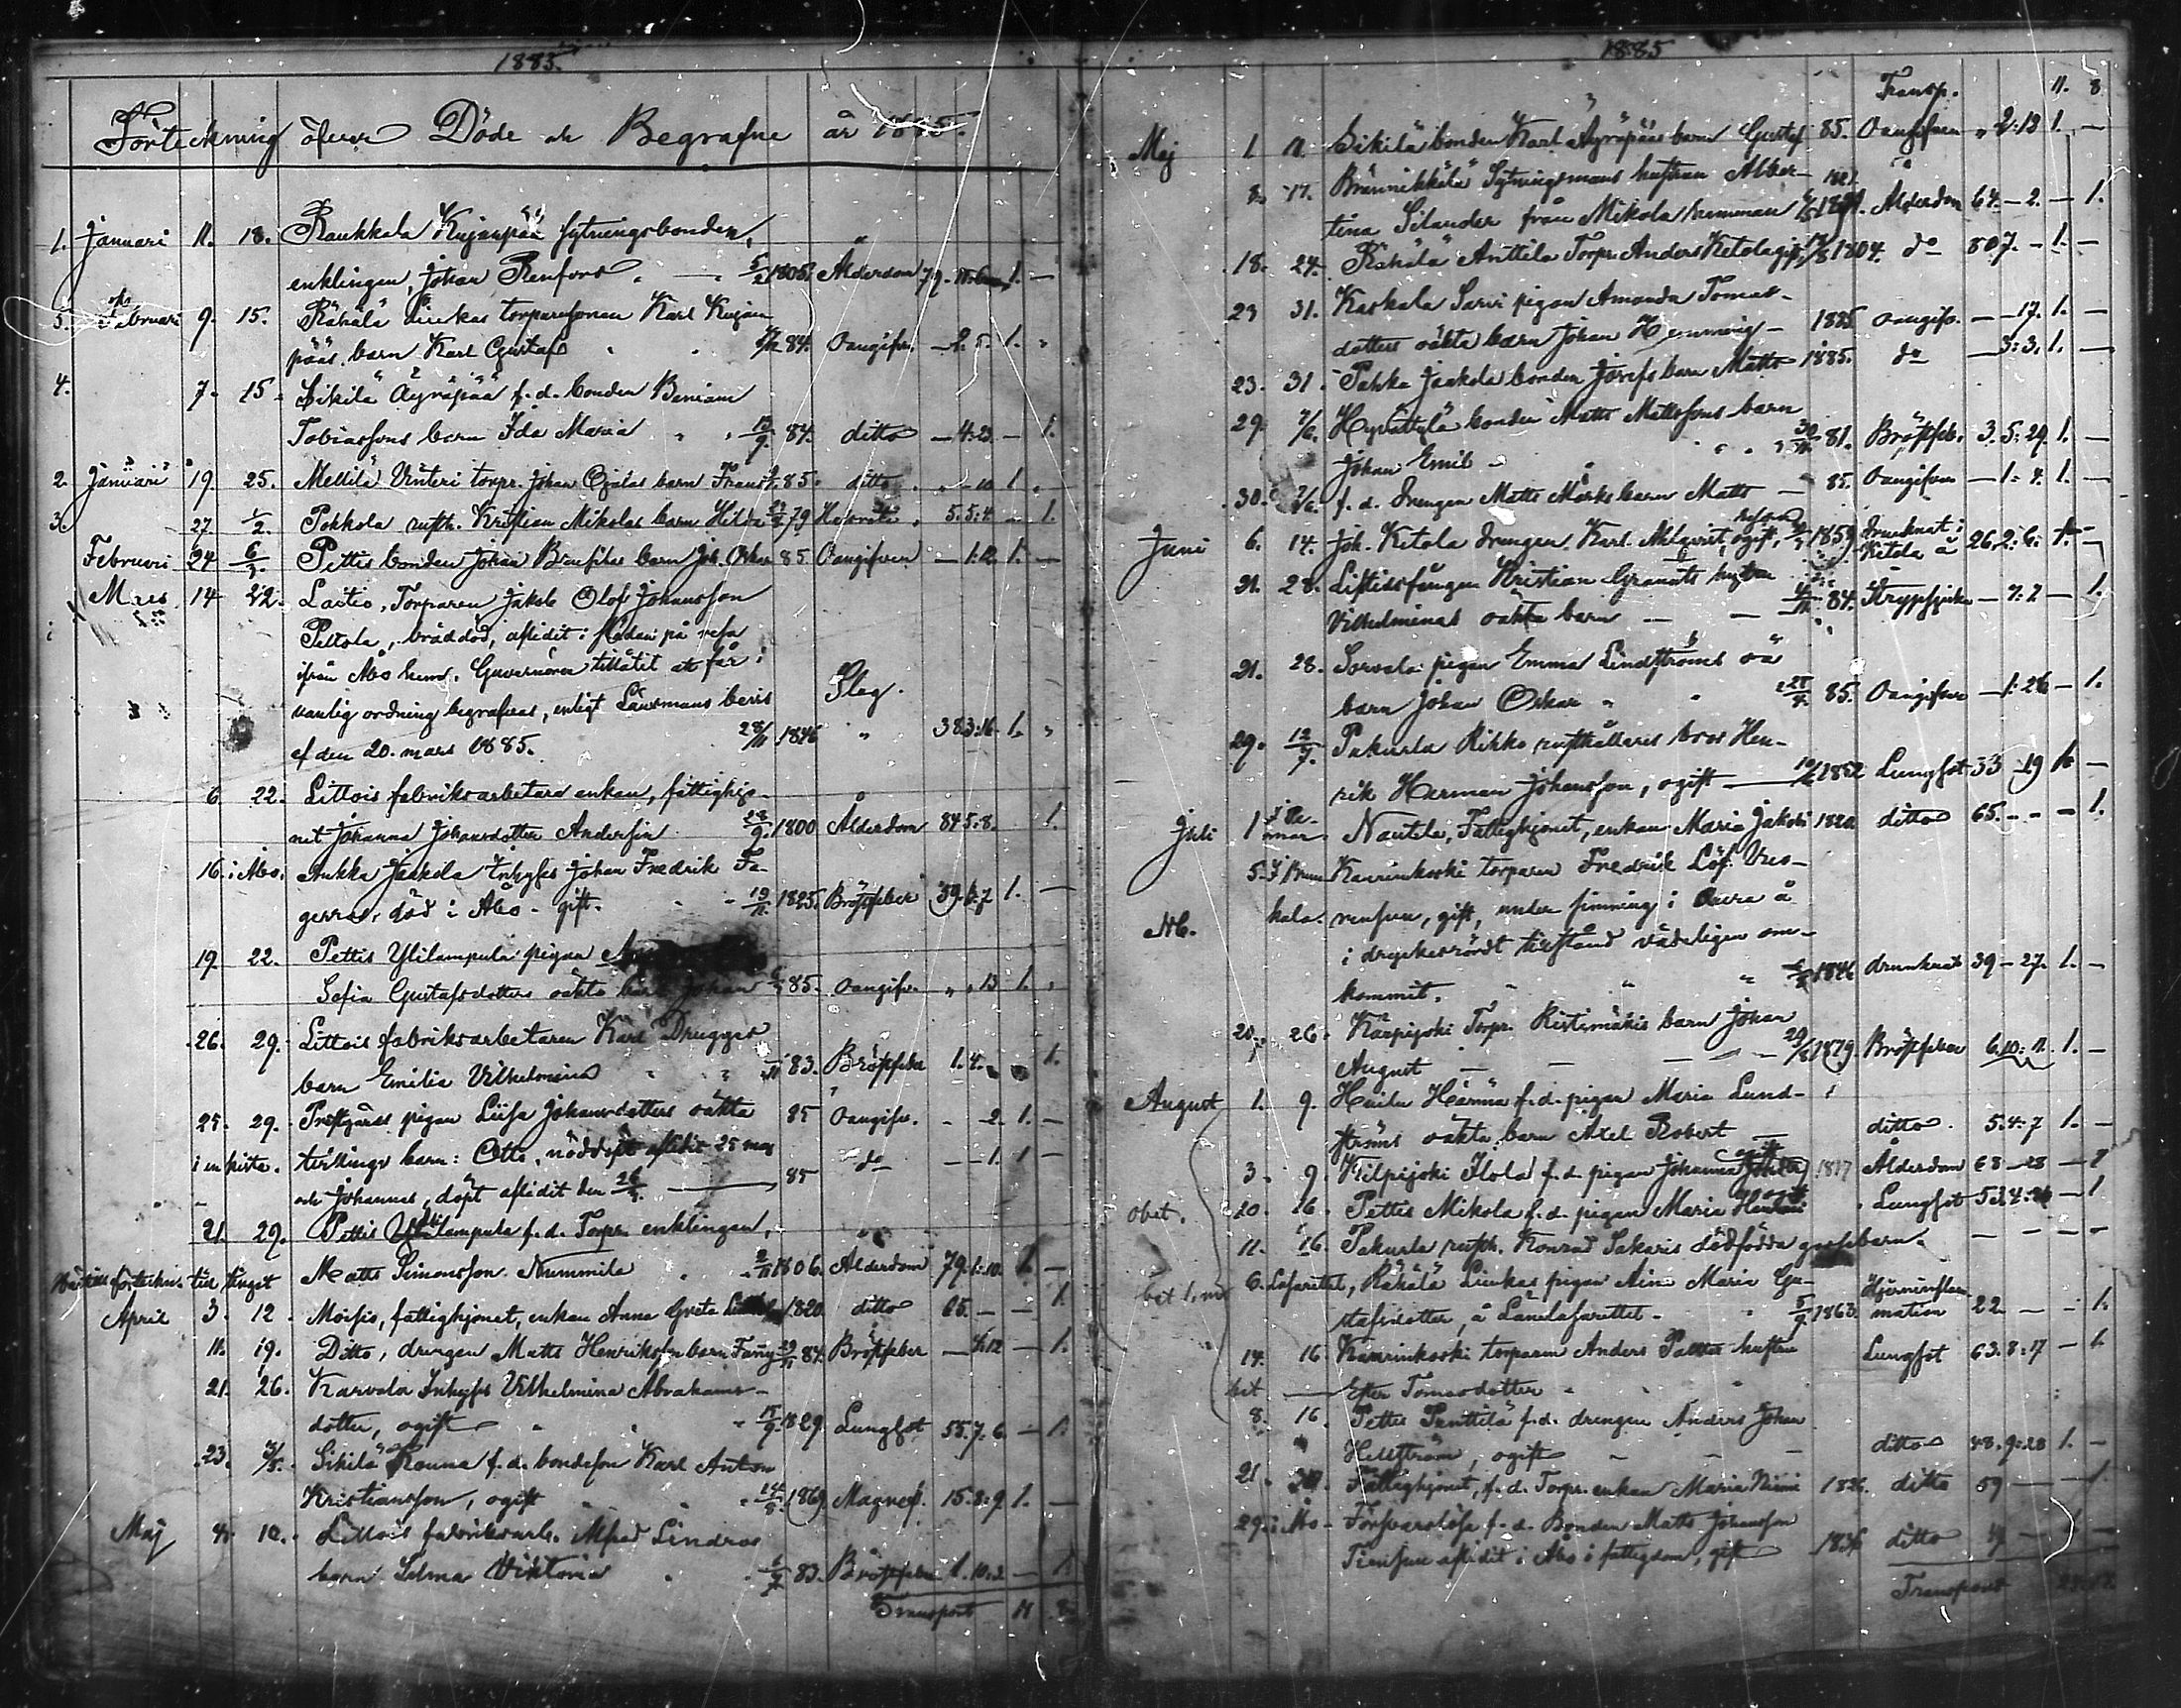 1885.
Förteckning öfver Döde och Begrafne år 1885.
1. Januari 11. 18. Raukkala Kujanpää sytningsbonden,
enklingen, Johan Renfors 5/2 1805. Ålderdom 79. 11. 6 1. —
5. Februari 9. 15. Rähälä Liukas torparesonen Karl Kujan-
pääs barn Karl Gustaf 84. Oangifven. — 2. 5. 1.
4. 7. 15. Likilä Äyräpää f. d. bonden Beniam
Tobiassons barn Ida Maria 13/9. 84. ditto — 4:23 — 1.
2. Januari 19. 25. Mellilä Vinteri torpr. Johan Ojalas barn Frans 85. ditto 10 1.
3. 27. 1/2. Pokkola rusth. Kristian Mikolas barn Hilda 79 5. 5:4 — 1.
Februari 24 6/3. Pettis bonden Johan barn Joh. Oskar 85 Oangifven — 1:12 1. —
Mars 14 22. Lautio, Torparen Jakob Olof Johansson
Peltola, bråddöd, aflidit i slädan på resa
ifrån Åbo hem. Guvernören tillåtit att får i
vanlig ordning begrafvas, enligt Länsmans bevis Slag.
af den 20. mars 1885. 28/11. 1846 " 38. 3:16 1.
6 22. Littois fabriksarbetare enkan, fattighjo-
net Johanna Johansdotter Andersin 28/9. 1800 Ålderdom 84 5:8. 1.
16. i Åbo. Aukka Jaakola Inhyses Johan Fredrik Fa-
gerros, död i Åbo - gift. 19/11. 1825. Bröstfeber 59. 1. —
19. 22. Pettis Ylilampula pigan
Sofia Gustafsdotters oäkta barn Johan 85. Oangifv. 13 1.
26. 29. Littois fabriksarbetaren Karl Drugges
barn Emilia Vilhelmina 83. Bröstfeber 1. 4. 1.
25. 29. Prestgårds pigan Liisa Johansdotters oäkta 85 Oangifv. - 2. 1. —
i en kista. tvillings barn: Otto, nöddöpt aflidit 25 mars
och Johannes, döpt aflidit den 26/3. 85 do — 1. 1 —
21. 29. Pettis Ylilampula f. d. Torpr. enklingen,
Matts Simonsson Nummila 2/11 1806. Ålderdom 79. 1:10. 1. —
till tinget
April 3. 12. Moisio, fattighjonet, enkan Anna Greta 1820 ditto 65. — — 1.
11. 19. Ditto, drengen Matts Henrikssons barn Fanny 29/11 84. Bröstfeber — 4:12 — 1.
21. 26. Karvala Inhyses Vilhelmina Abrahams-
dotter, ogift 15/9. 1829. Lungsot 55. 7. 6. — 1.
23. 3/5. Likilä Rouna f. d. bondeson Karl Anton
Kristiansson, ogift 14/8. 1869 Magnef. 15. 8:9 1. —
Maj 4. 10. Littois fabriksarb. Alfred Lindros
barn Selma Viktoria 83. Bröstfeber 1. 10. 2 — 1.
Transport 11 8
1885
Transp. 11. 8
Maj 1 11. Likilä bonden Karl Äyräpääs barn Gustaf 85. Oangifven " 2:13 1. —
8. 17. Brännikkälä Sytningsmans hustrun Alber-
tina Silander från Mikola hemman Ålderdom 64. — 2. — 1.
18. 24. Rähälä Anttila Torpr. Anders Ketola gift, 1804. do 80 7. — 1. —
23 31. Kaskala Sarvi pigan Amanda Tomas-
dotters oäkta barn Johan Henning 1885 oangifv. — 17. 1. —
23. 31. Pahka Jaakola bonden Josefs barn Matts 1885. do — 3:3. 1. —
29. 7/6. Hyvättylä bonden Matts Mattssons barn
Johan Emil 30/11 81. Bröstfeb. 3. 5:29. 1. —
30. 7/6. f. d. drengen Matts Marks barn Matts — 85. Oangifven — 1: 4. 1. —
Juni 6. 14. Joh. Ketola drengen Karl Ahlqvist, ogift, 1859 Drunknat i
Ketola å 26. 2:6. 1. —
21. 28. Liftidsfången Kristian Granats hustru
Vilhelminas oäkta barn — 84. Strypsjuka — 7. 7 — 1.
21. 28. Sorvala pigan Emma Lindströms oä
barn Johan Oskar 25/4. 85. Oangifven — 1:26 — 1.
29. 12/7. Pakurla Rikko rusthållares bror Hen-
rik Herman Johansson, ogift — 1852 Lungsot 33 — 19 1. —
Juli 1 i Pemar Nautela, Fattighjonet, enkan Maria Jakobs 1820 ditto 65. — — — 1.
5. i Brun- Kanrinkoski torparen Fredrik Löf.
kala. gift, under simning i Aura å
NB. i dryckesrördt tillstånd vådeligen om-
kommit. 1846 drunknat 39 — 27. 1. —
20. 26. Kärpijoki Torpr. Ristimäkis barn Johan
August 29/8 1879. Bröstfeber 6. 10: 11. 1. —
August 1. 9. Huilu Härmä f. d. pigan Maria Lund-
ströms oäkta barn Axel Robert — ditto. 5:4:7 1. —
3. 9. Kilpijoki Ilola f. d. pigan Johanna ogift 1817 Ålderdom 68 — 28 — 1
obet. 10. 16. Pettis Mikola f. d. pigan Maria Lungsot 53. 4: — 1
11. 16. Pakurla rusth. Konrad Sakaris dödfödda gossebarn. — — — —
6. Lasarettet, Rähälä Liukas pigan Aina Maria Gu-
stafsdotter, å Länelasarettet. 5/9. 1863. Hjerninflam-
mation 22 — — 1.
14. 16 Kanrinkoski torparen Anders hustru Lungsot 63. 8:17 — 1.
Ester Tomasdotter
8. 16. Pettis Penttilä f. d. drengen Anders Johan
Hellström, ogift — ditto 48. 9:28 1. —
21. Fattighjonet, f. d. Torpr. enkan Maria Niemi 1826. ditto 59 — — 1.
29. i Åbo Försvarslösa f. d. Bonden Matts Johansson
aflidit i Åbo i fattigdom, gift 1836 ditto
Transport